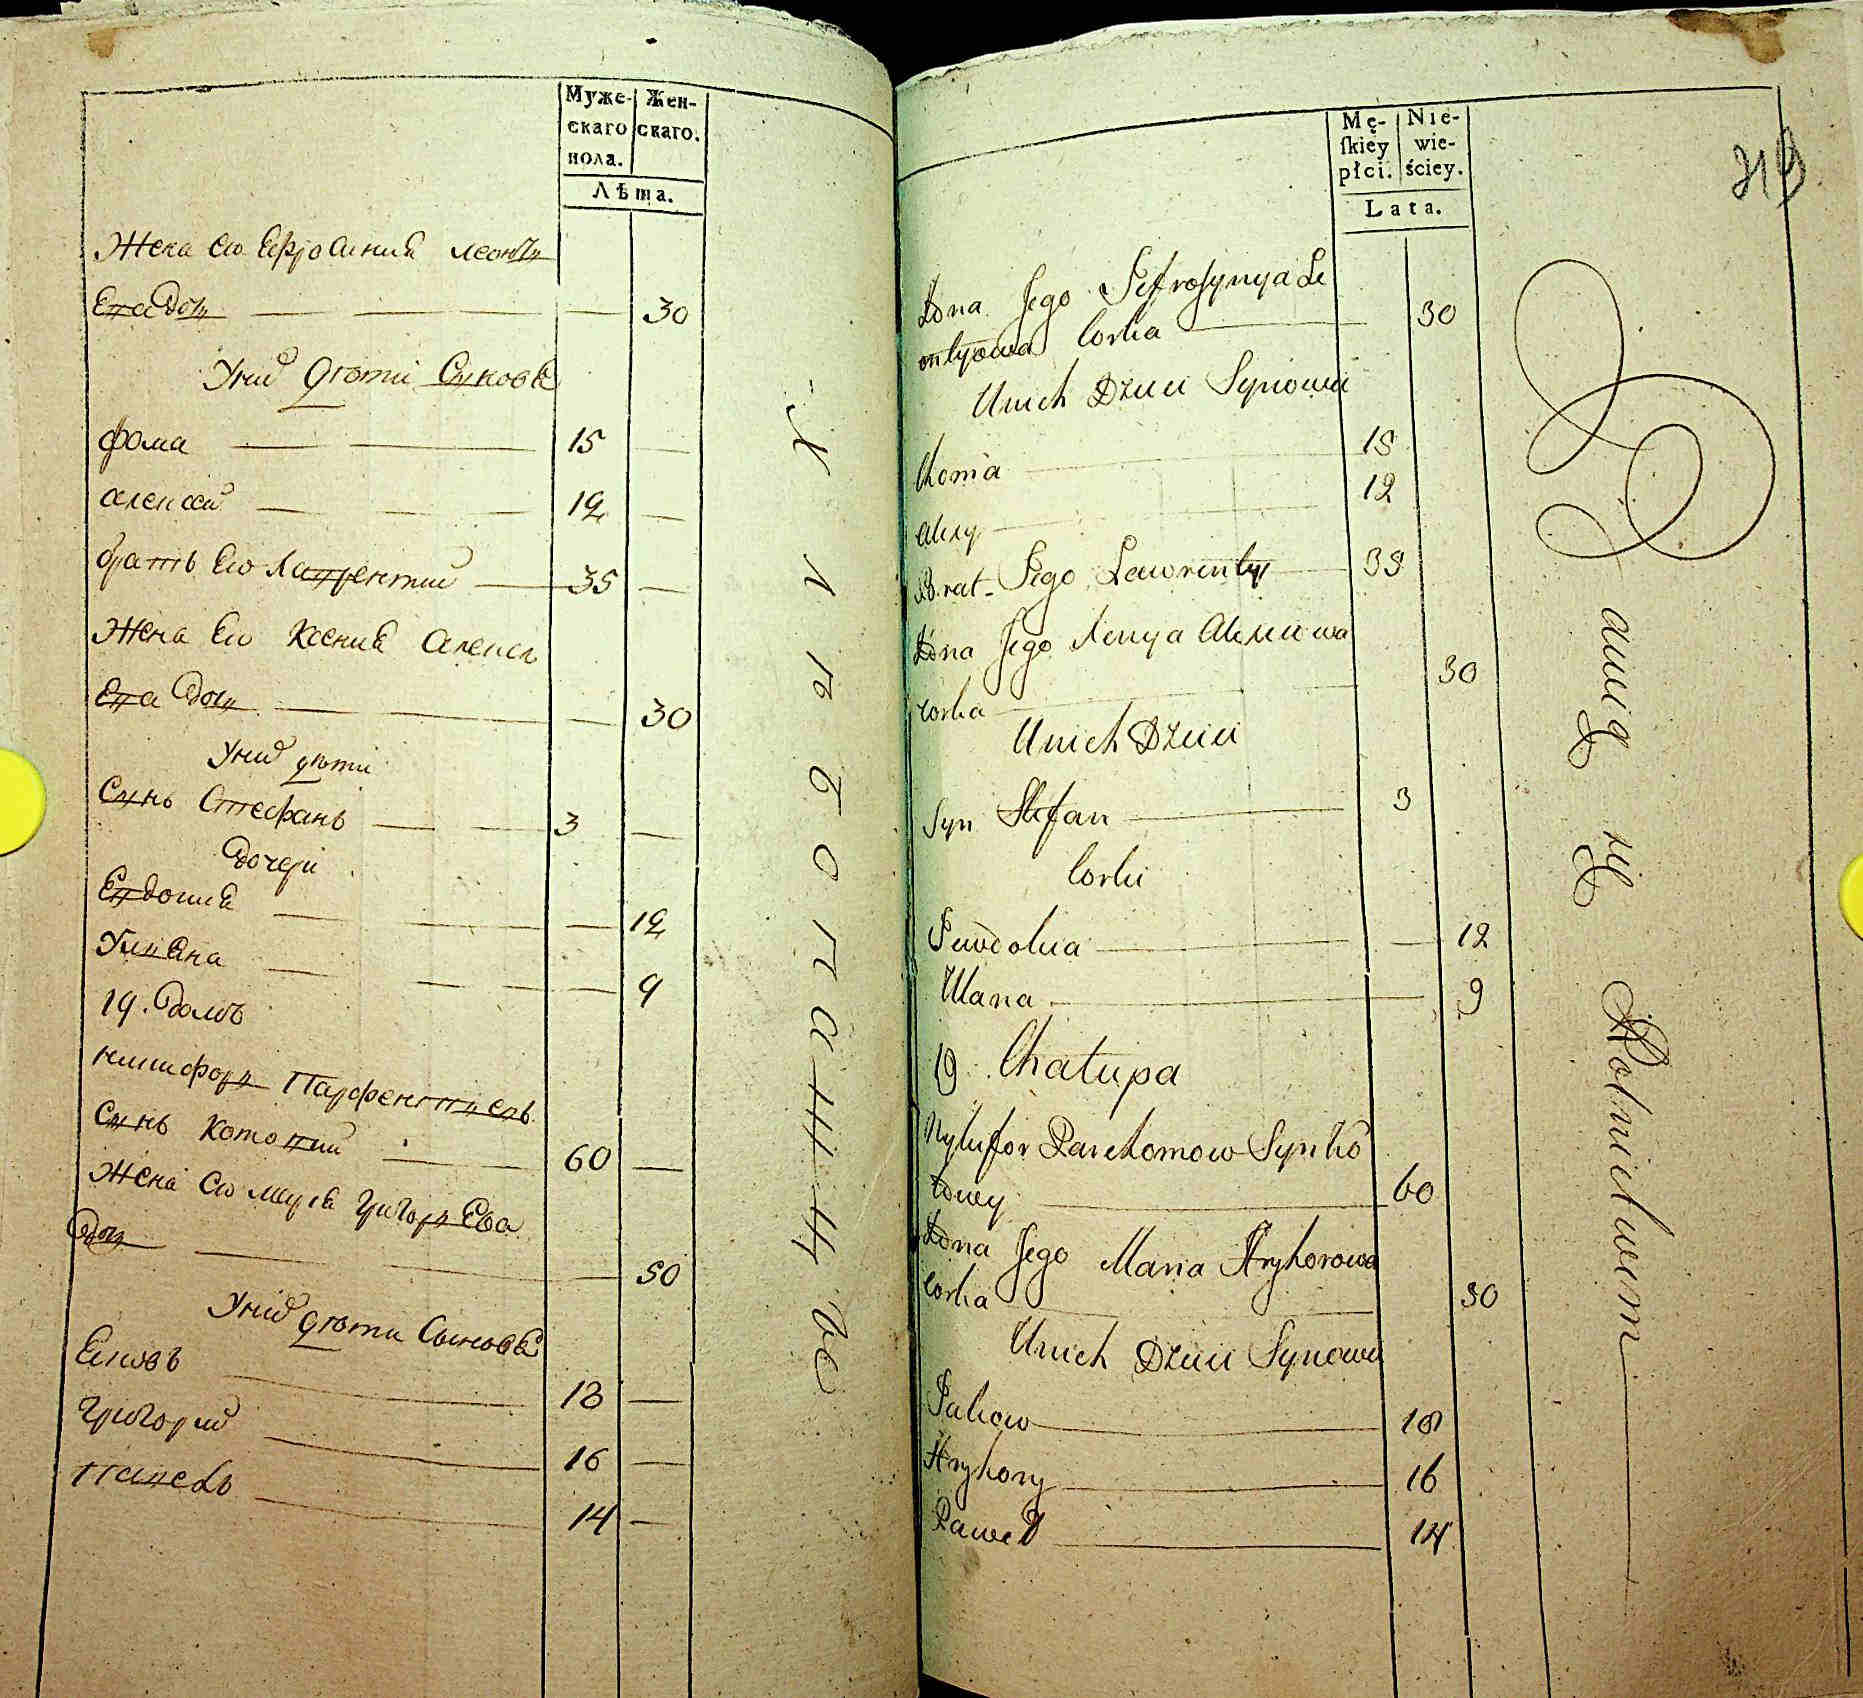 Муже-
скаго
пола.
Жен-
скаго.
Лѣта.
Жена Его Ефросиниа Леонть
Ева дочь 30
У них дѣти Сыновя
Фома 15
Алексей 12
братъ Его Лаврентий 35
Жена Его Ксениа Алексе
Ева дочь 30
У них дѣти
Сынъ Стефанъ 3
Дочери
Евдокиа 12
Улиана 9
19. Домъ
Никифоръ Парфентьевъ
Сынъ Котовий 60
Жена Его Мариа Григорьева
дочь 50
У них дѣти Сыновя
Яковъ 18
Григорий 16
Павелъ 14
Хлѣбопашцы
Mę-
ſkiey
płci.
Nie-
wie-
ściey.
Lata.
219
Żona Jego Jefrosynya Le
ontyowa Corka 30
U nich Dzieci Synowie
Choma 15
Alexy 12
Brat Jego Lawrenty 35
Żona Jego Xenya Alexiiowa
Corka 30
U nich Dzieci
Syn Stefan 3
Corki
Jewdokia 12
Ulana 9
19. Chałupa
Nykifor Parchomow Syn Ko
towy 60
Żona Jego Maria Hryhorowa
Corka 50
U nich Dzieci Synowie
Jakow 18
Hryhory 16
Paweł 14
Bawią się Rolnictwem